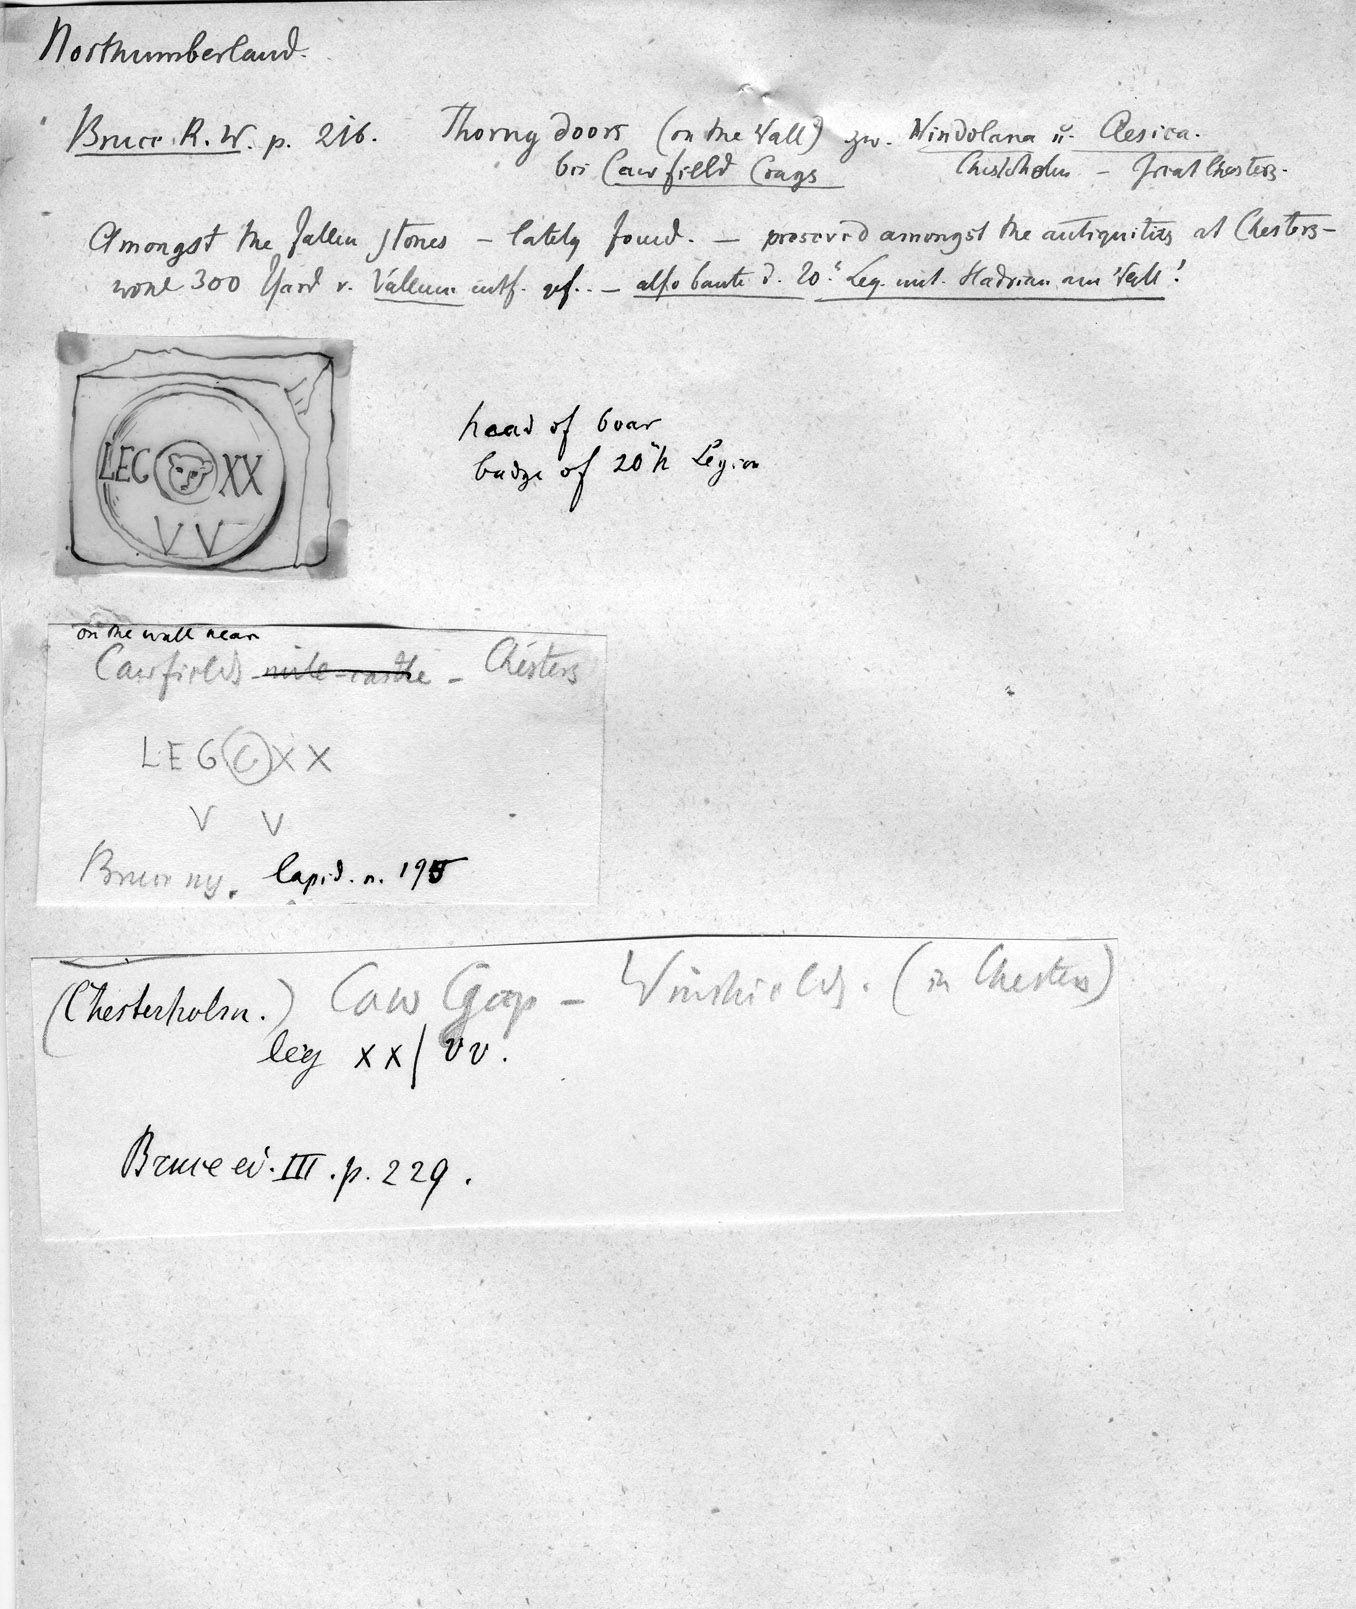 Northumberland.
Bruce R. W. p. 216. Thorny doors (on the Wall) zw. Vindolana u. Aesica.
bei Cawfield Crags Chesterholm – Great Chesters.
Amongst the fallen stones – lately found. – preserved amongst the antiquities at Chesters –
wohl 300 Yard v. Vallum entf. gef. – also baute d. 20. Leg. mit Hadrian am Wall!
LEG XX
V V
head of boar
badge of 20th Legion
on the wall near
Cawfields mile-castle – Chesters
LEG C XX
V V
Bruce lapid. n. 195
(Chesterholm.) Caw Gap – Winshields. (in Chesters)
leg xx/ vv.
Bruce ed. III. p. 229.